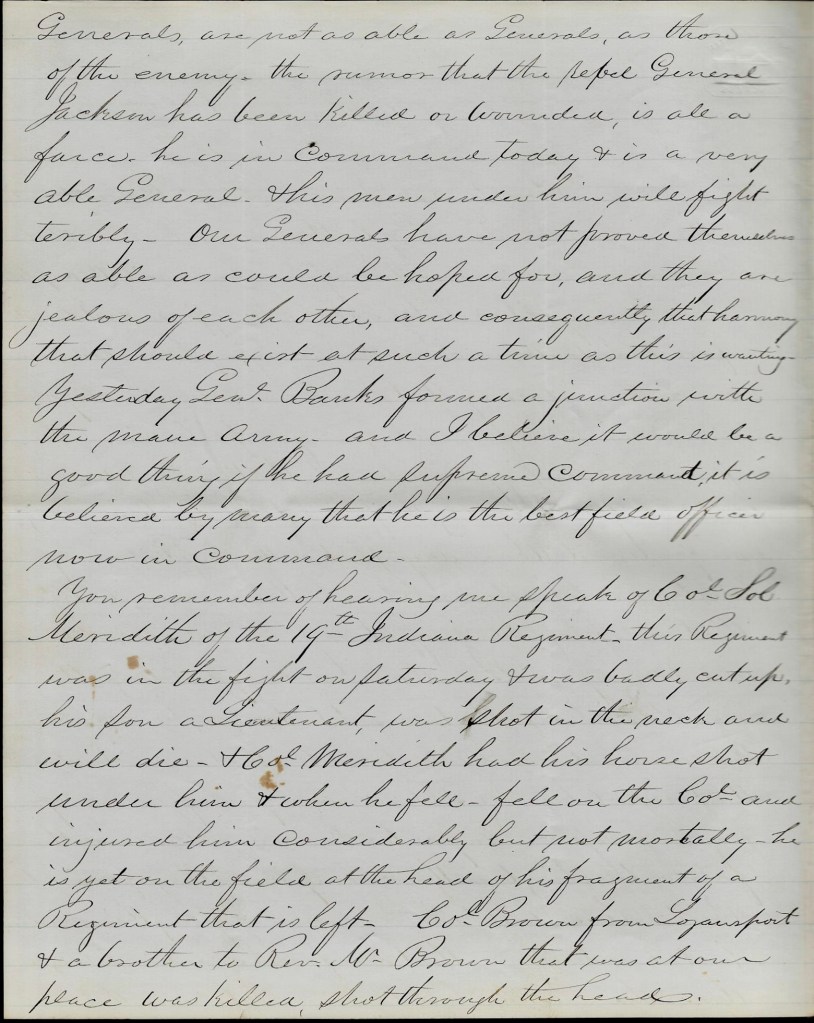 Generals, are not as able as Generals, as those
of the enemy - the rumor that the rebel General
Jackson has been killed or wounded, is all a
farce - he is in command today & is a very
able General - & his men under him will fight
teribly - Our Generals have not proved themselves
as able as could be hoped for, and they are
jealous of each other, and consequently that harmony
that should exist at such a time as this is wanting -
Yesterday Genl. Banks formed a junction with
the mane Army - and I believe it would be a
good thing if he had supreme command, it is
believed by many that he is the best field officer
now in command -
You remember of hearing me speak of Col. Sol
Meridith of the 19th Indiana Regiment - this Regiment
was in the fight on Saturday & was badly cut up,
his son a Lieutenant, was shot in the neck and
will die - & Col. Meridith had his horse shot
under him & when he fell - fell on the Col. and
injured him considerably but not mortally - he
is yet on the field at the head of his fragment of a
Regiment that is left - Col. Brown from Logansport
& a brother to Rev. Mr. Brown that was at our
place was killed, shot through the head.